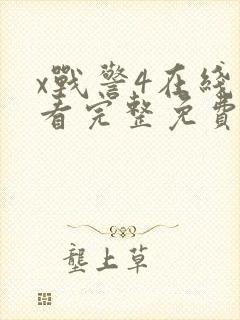 x戰警4在綫
看完整免費
壟上草